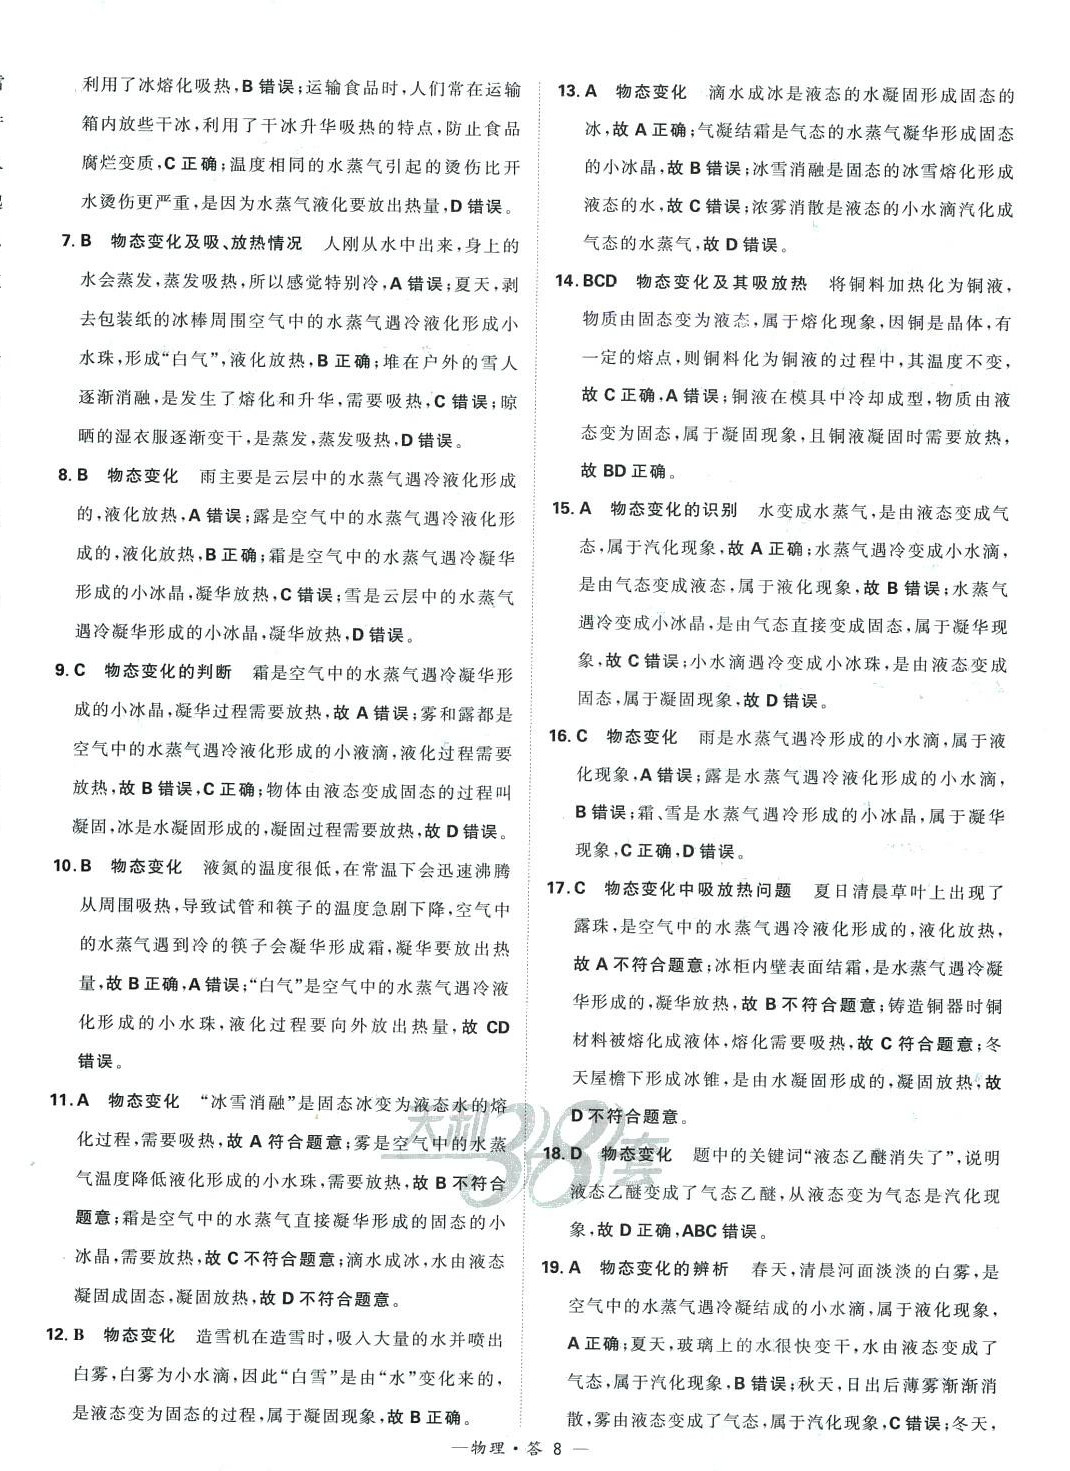 利用了冰熔化吸热,B错误;运输食品时,人们常在运输
箱内放些干冰,利用了干冰升华吸热的特点,防止食品
腐烂变质,C正确;温度相同的水蒸气引起的烫伤比开
水烫伤更严重,是因为水蒸气液化要放出热量,D错误。
7. B 物态变化及吸、放热情况 人刚从水中出来,身上的
水会蒸发,蒸发吸热,所以感觉特别冷,A错误;夏天,剥
去包装纸的冰棒周围空气中的水蒸气遇冷液化形成小
水珠,形成“白气”,液化放热,B正确;堆在户外的雪人
逐渐消融,是发生了熔化和升华,需要吸热,C错误;晾
晒的湿衣服逐渐变干,是蒸发,蒸发吸热,D错误。
8. B 物态变化 雨主要是云层中的水蒸气遇冷液化形成
的,液化放热,A错误;露是空气中的水蒸气遇冷液化形
成的,液化放热,B正确;霜是空气中的水蒸气遇冷凝华
形成的小冰晶,凝华放热,C错误;雪是云层中的水蒸气
遇冷凝华形成的小冰晶,凝华放热,D错误。
9. C 物态变化的判断 霜是空气中的水蒸气遇冷凝华形
成的小冰晶,凝华过程需要放热,故A错误;雾和露都是
空气中的水蒸气遇冷液化形成的小液滴,液化过程需要
放热,故B错误,C正确;物体由液态变成固态的过程叫
凝固,冰是水凝固形成的,凝固过程需要放热,故D错误。
10. B 物态变化 液氮的温度很低,在常温下会迅速沸腾
从周围吸热,导致试管和筷子的温度急剧下降,空气中
的水蒸气遇到冷的筷子会凝华形成霜,凝华要放出热
量,故B正确,A错误;“白气”是空气中的水蒸气遇冷液
化形成的小水珠,液化过程要向外放出热量,故CD
错误。
11. A 物态变化 “冰雪消融”是固态冰变为液态水的熔
化过程,需要吸热,故A符合题意;雾是空气中的水蒸
气温度降低液化形成的小水珠,需要放热,故B不符合
题意;霜是空气中的水蒸气直接凝华形成的固态的小
冰晶,需要放热,故C不符合题意;滴水成冰,水由液态
凝固成固态,凝固放热,故D不符合题意。
12. B 物态变化 造雪机在造雪时,吸入大量的水并喷出
白雾,白雾为小水滴,因此“白雪”是由“水”变化来的,
是液态变为固态的过程,属于凝固现象,故B正确。
13. A 物态变化 滴水成冰是液态的水凝固形成固态的
冰,故A正确;气凝结霜是气态的水蒸气凝华形成固态
的小冰晶,故B错误;冰雪消融是固态的冰雪熔化形成
液态的水,故C错误;浓雾消散是液态的小水滴汽化成
气态的水蒸气,故D错误。
14. BCD 物态变化及其吸放热 将铜料加热化为铜液,
物质由固态变为液态,属于熔化现象,因铜是晶体,有
一定的熔点,则铜料化为铜液的过程中,其温度不变,
故C正确,A错误;铜液在模具中冷却成型,物质由液
态变为固态,属于凝固现象,且铜液凝固时需要放热,
故BD正确。
15. A 物态变化的识别 水变成水蒸气,是由液态变成气
态,属于汽化现象,故A正确;水蒸气遇冷变成小水滴,
是由气态变成液态,属于液化现象,故B错误;水蒸气
遇冷变成小冰晶,是由气态直接变成固态,属于凝华现
象,故C错误;小水滴遇冷变成小冰珠,是由液态变成
固态,属于凝固现象,故D错误。
16. C 物态变化 雨是水蒸气遇冷形成的小水滴,属于液
化现象,A错误;露是水蒸气遇冷液化形成的小水滴,
B错误;霜、雪是水蒸气遇冷形成的小冰晶,属于凝华
现象,C正确,D错误。
17. C 物态变化中吸放热问题 夏日清晨草叶上出现了
露珠,是空气中的水蒸气遇冷液化形成的,液化放热,
故A不符合题意;冰柜内壁表面结霜,是水蒸气遇冷凝
华形成的,凝华放热,故B不符合题意;铸造铜器时铜
材料被熔化成液体,熔化需要吸热,故C符合题意;冬
天屋檐下形成冰锥,是由水凝固形成的,凝固放热,故
D不符合题意。
18. D 物态变化 题中的关键词“液态乙醚消失了”,说明
液态乙醚变成了气态乙醚,从液态变为气态是汽化现
象,故D正确,ABC错误。
19. A 物态变化的辨析 春天,清晨河面淡淡的白雾,是
空气中的水蒸气遇冷凝结成的小水滴,属于液化现象,
A正确;夏天,玻璃上的水很快变干,水由液态变成了
气态,属于汽化现象,B错误;秋天,日出后薄雾渐渐消
散,雾由液态变成了气态,属于汽化现象,C错误;冬天,
天利38套
—物理·答 8 —